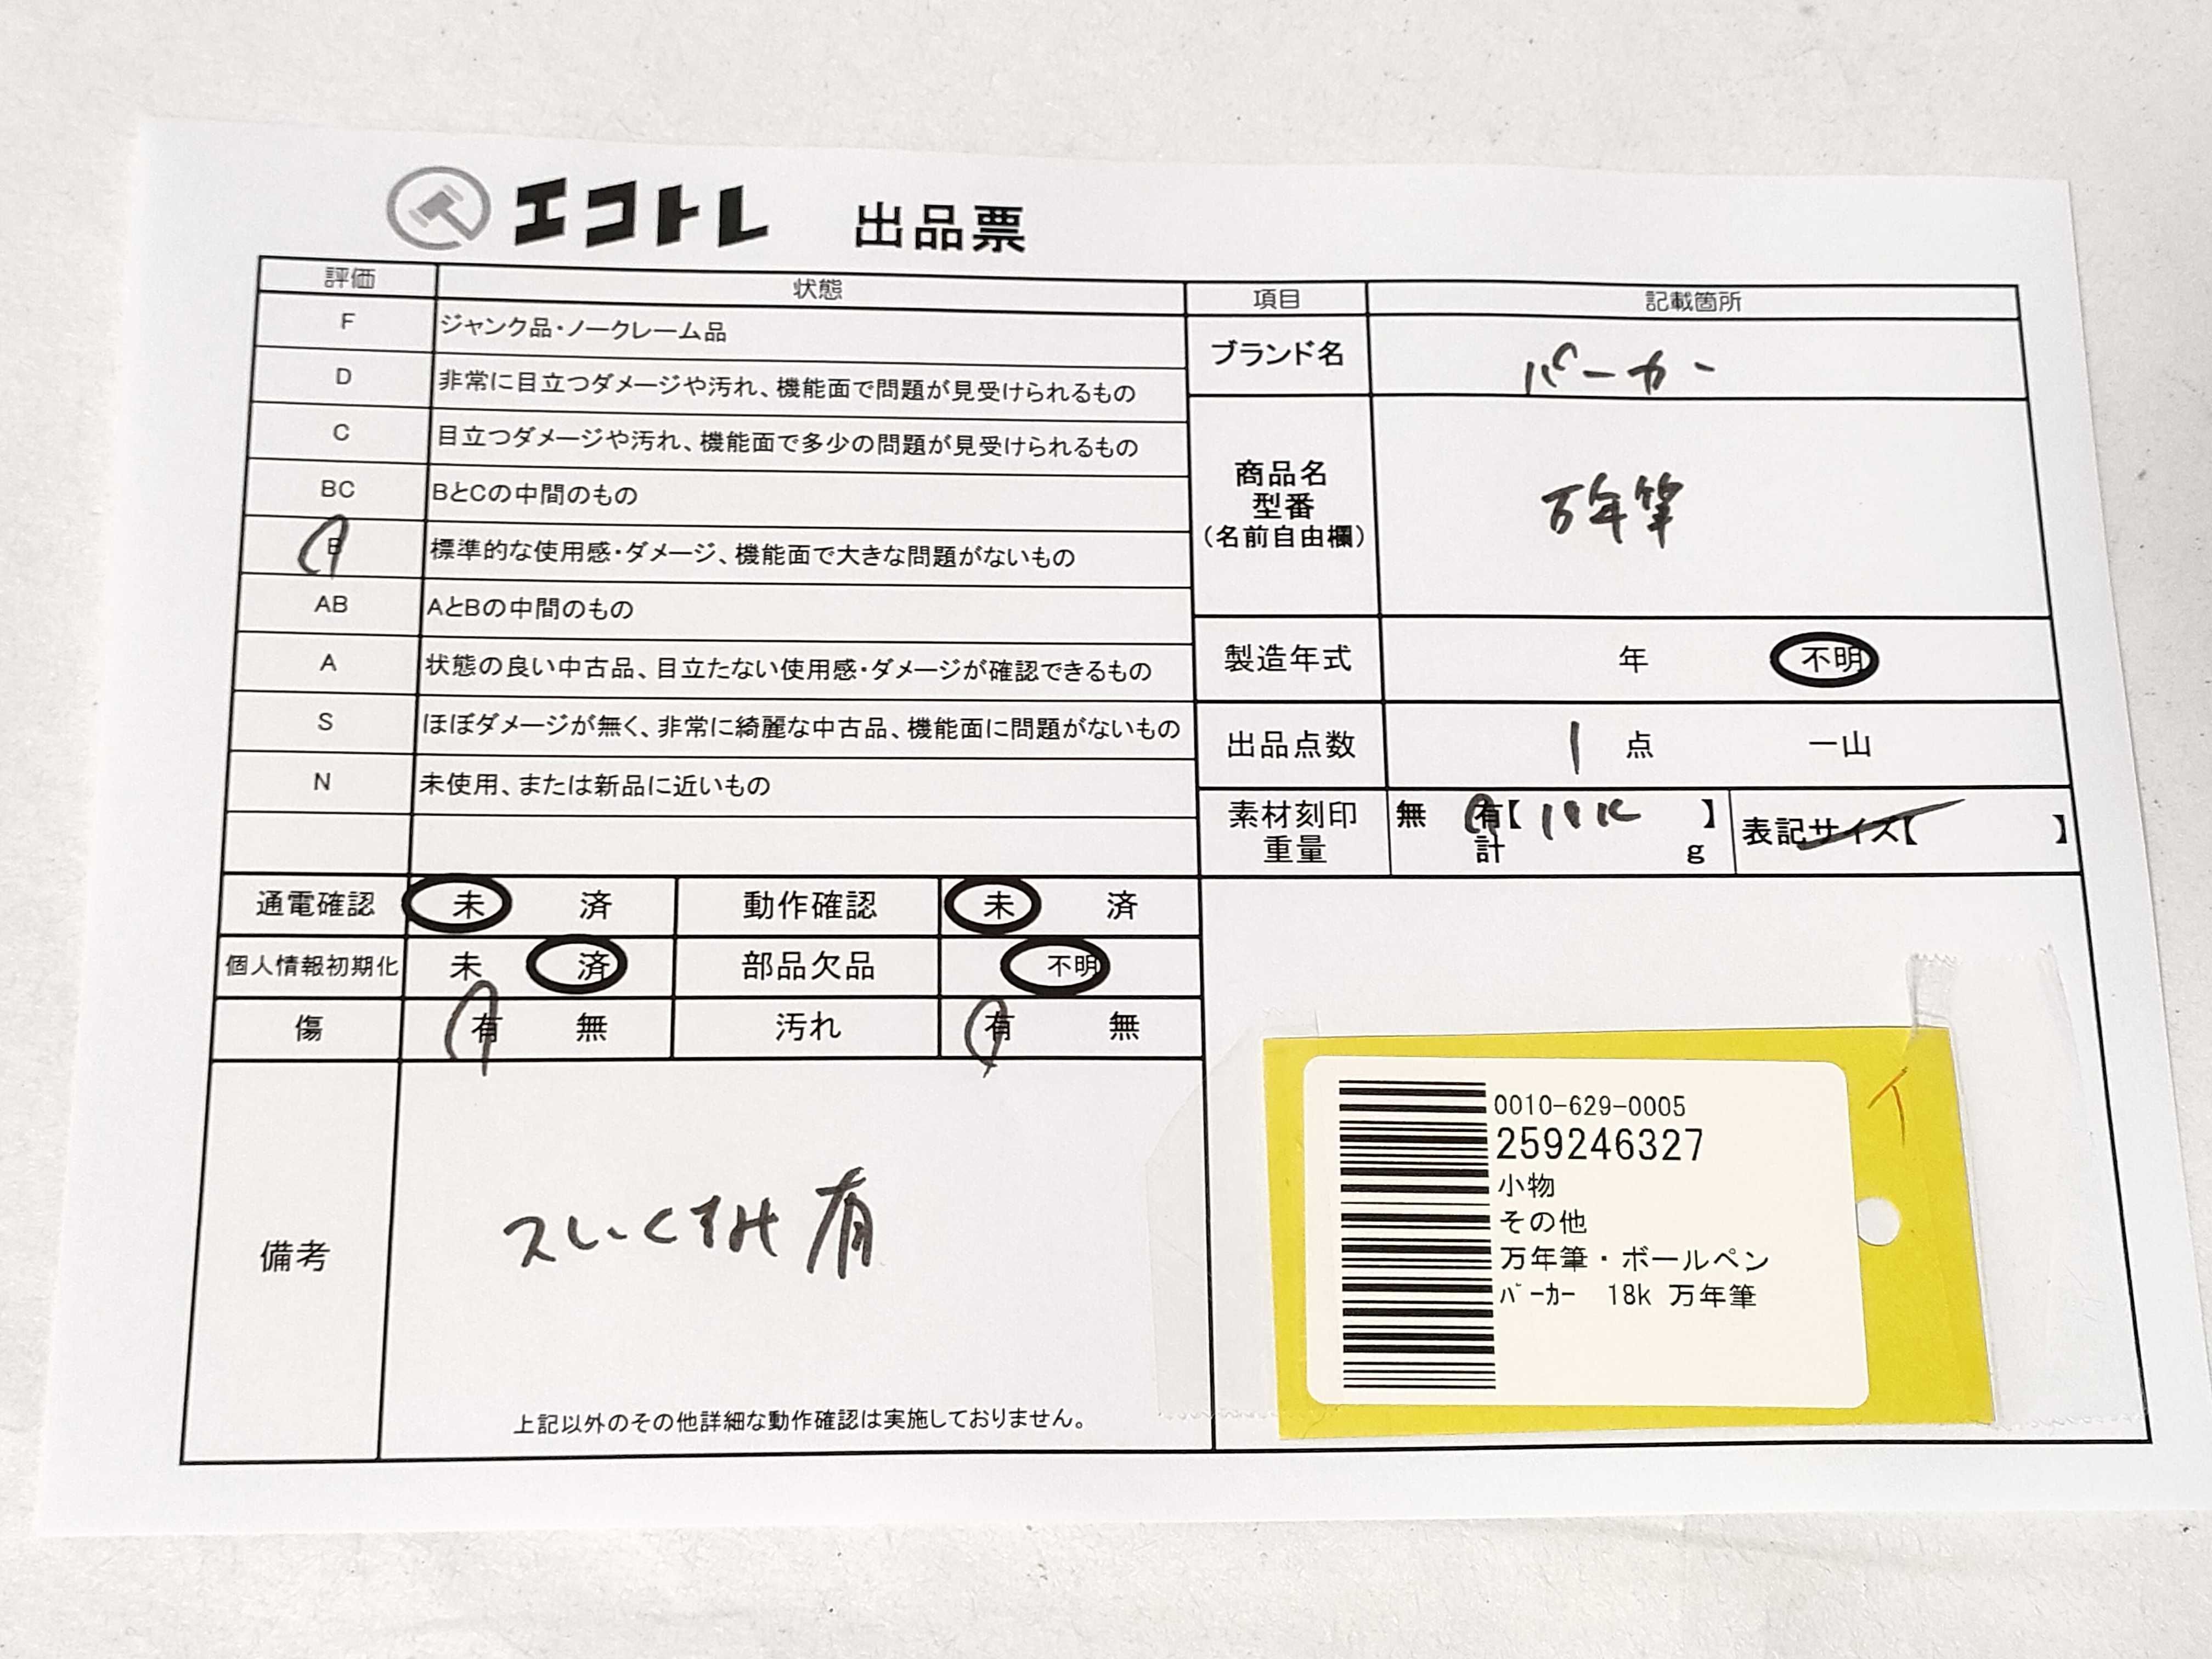 エコトレ 出品票
評価 状態
F ジャンク品・ノークレーム品
D 非常に目立つダメージや汚れ、機能面で問題が見受けられるもの
C 目立つダメージや汚れ、機能面で多少の問題が見受けられるもの
BC BとCの中間のもの
B 標準的な使用感・ダメージ、機能面で大きな問題がないもの
AB AとBの中間のもの
A 状態の良い中古品、目立たない使用感・ダメージが確認できるもの
S ほぼダメージが無く、非常に綺麗な中古品、機能面に問題がないもの
N 未使用、または新品に近いもの
項目 記載箇所
ブランド名 パーカー
商品名
型番
(名前自由欄)
万年筆
製造年式 年 不明
出品点数 1 点 一山
素材刻印 無 有【 18K 】
重量 計 g
表記サイズ【 】
通電確認 未 済 動作確認 未 済
個人情報初期化 未 済 部品欠品 不明
傷 有 無 汚れ 有 無
備考
スレ・くすみ 有
上記以外のその他詳細な動作確認は実施しておりません。
0010-629-0005
259246327
小物
その他
万年筆・ボールペン
ﾊﾟｰｶｰ 18k 万年筆
イ